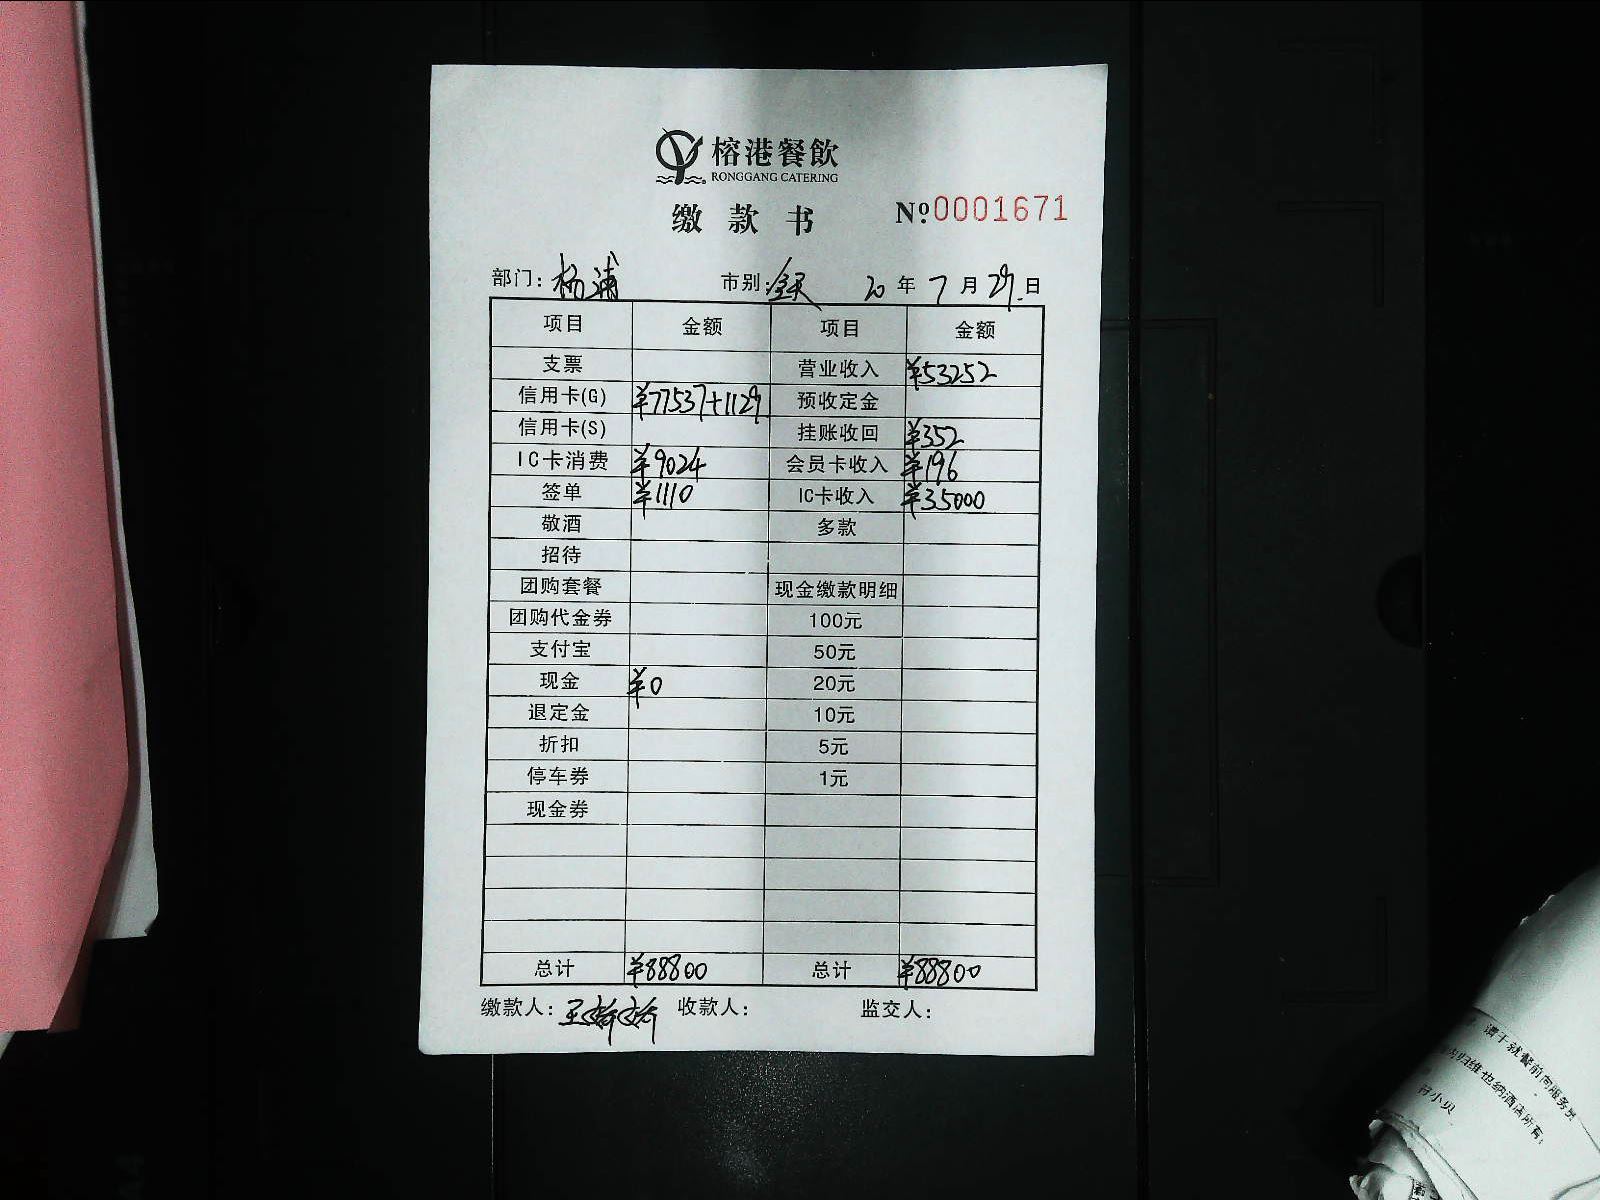 榕港餐飲
RONGGANG CATERING
缴款书 №0001671
部门：杨浦 市别：全天 20年7月29日
项目 金额 项目 金额
支票 营业收入 ¥53252
信用卡(G) ¥77537+1129 预收定金
信用卡(S) 挂账收回 ¥352
IC卡消费 ¥9024 会员卡收入 ¥196
签单 ¥1110 IC卡收入 ¥35000
敬酒 多款
招待
团购套餐 现金缴款明细
团购代金券 100元
支付宝 50元
现金 ¥0 20元
退定金 10元
折扣 5元
停车券 1元
现金券
总计 ¥88800 总计 ¥88800
缴款人：王 收款人： 监交人：
请于就餐前向服务员
内归维也纳酒店所有